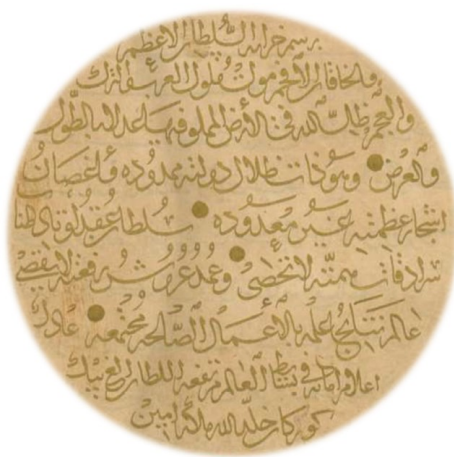 برسم خزانة السلطان الاعظم
والخاقان الافخم ملوك العرب والترك
والعجم ظل الله في الارض المملو فيها عدله بالطول
والعرض • ظلال دولته ممدوده واغصان
اشجار عظمته غير معدوده • سلطان
سرادقات همته لا تحصى • وعمد عروش رفعته لا تقصى
عالم نتايج علمه بالاعمال الصالحة مجتمعه • عادل
اعلام امانه في بساط العالم مرتفعه السلطان الغ بيك
كوركان خلد الله ملكه امين